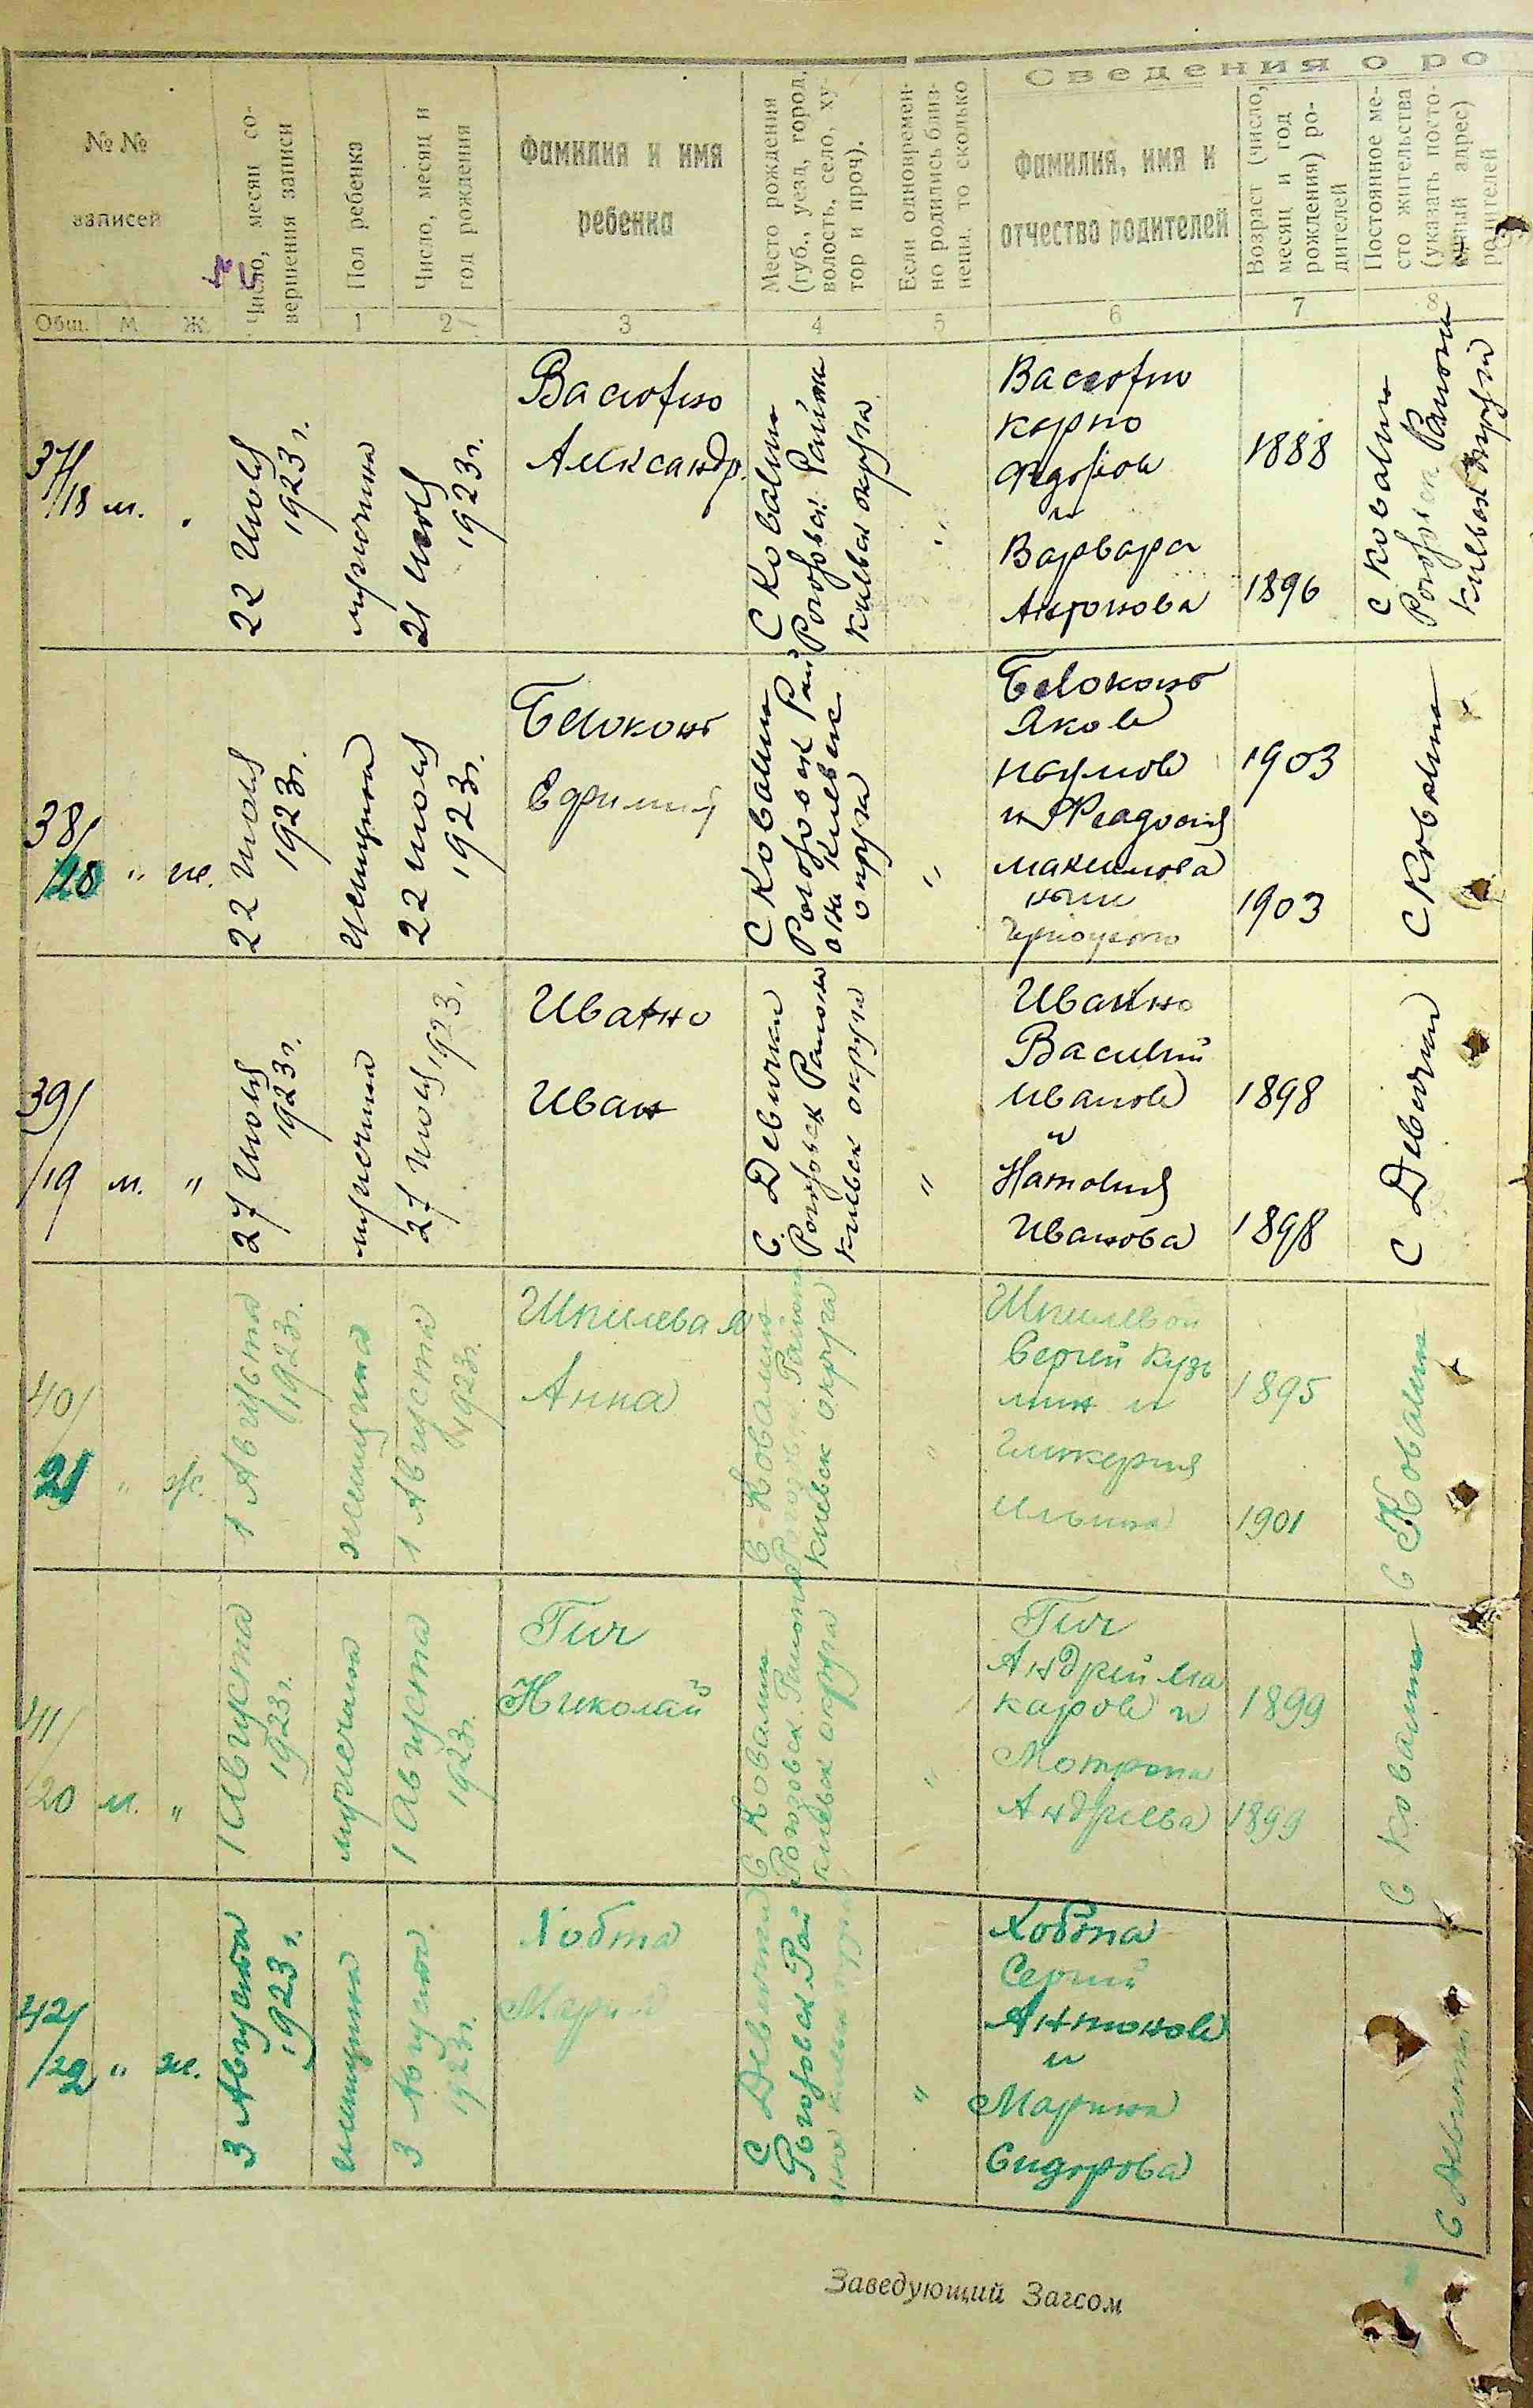 Сведения о ро
№№
записей
Число, месяц со-
вершения записи
Пол ребенка
Число, месяц и
год рождения
Фамилия и имя
ребенка
Место рождения
(губ., уезд, город,
волость, село, ху-
тор и проч).
Если одновремен-
но родились близ-
нецы, то сколько
Фамилия, имя и
отчество родителей
Возраст (число,
месяц и год
рождения) ро-
дителей
Постоянное ме-
сто жительства
(указать посто-
адрес)
родителей
Общ. М. Ж.
1
2
3
4
5
6
7
8
37/
/18 м. "
22 июля
1923 г.
мужчина
21 июля
1923 г.
Александр
С Ковалин
Киевск округа
"
Карпо
Федоров
и
Варвара
Антонова
1888
1896
С Ковалин
38/
/20 " ж.
22 июля
1923 г.
женщина
22 июля
1923 г.
Белоконь
С Ковалин
Рогозовск Рай
она Киевск
округа
"
Белоконь
Яков
Наумов
Максимова
1903
1903
С Ковалин
39/
/19 м. "
27 июля
1923 г.
мужчина
27 июля 1923
Иван
С. Девички
Киевск округа
"
Василий
Иванов
и
Наталия
Иванова
1898
1898
С Девички
40/
21 " ж.
1 Августа
1923 г.
женщина
1 Августа
1923 г.
Шпилевая
Анна
С Ковалин
Киевск округа
"
Шпилевой
Сергей Кузь
мин и
Гликерия
Ильина
1895
1901
С Ковалин
41/
/20 м. "
1 Августа
1923 г.
мужчина
1 Августа
1923 г.
Гич
Николай
С Ковалин
Киевск округа
"
Гич
Андрей Ма
каров и
Мотрона
Андреева
1899
1899
С Ковалин
42/
/22 " ж.
3 Августа
1923 г.
женщина
3 Августа
1923 г.
Хобта
Мария
С Девички
Рогозовск Рай
"
Хобта
Сергий
Антонов
и
Марина
Сидорова
С Девички
Заведующий Загсом